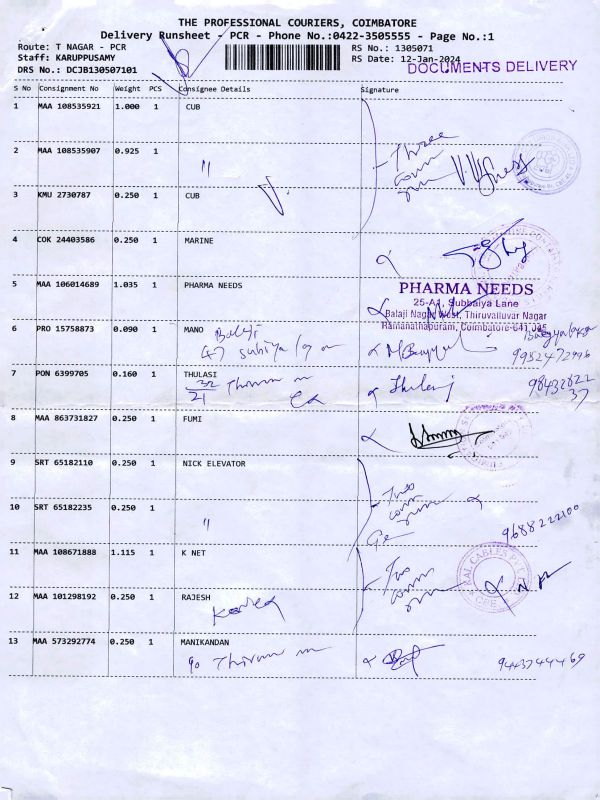 THE PROFESSIONAL COURIERS, COIMBATORE
Delivery Runsheet - PCR - Phone No.:0422-3505555 - Page No.:1
Route: T NAGAR - PCR RS No.: 1305071
Staff: KARUPPUSAMY RS Date: 12-Jan-2024
DRS No.: DCJB130507101 DOCUMENTS DELIVERY
S No Consignment No Weight PCS Consignee Details Signature
1 MAA 108535921 1.000 1 CUB
Three
2 MAA 108535907 0.925 1 "
3 KMU 2730787 0.250 1 CUB
4 COK 24403586 0.250 1 MARINE
5 MAA 106014689 1.035 1 PHARMA NEEDS
PHARMA NEEDS
25-A1, Subbaiya Lane
Balaji Nagar West, Thiruvalluvar Nagar
Ramanathapuram, Coimbatore-641 045
6 PRO 15758873 0.090 1 MANO
Balaji
9952472996
7 PON 6399705 0.160 1 THULASI
32/21
8 MAA 863731827 0.250 1 FUMI
9 SRT 65182110 0.250 1 NICK ELEVATOR
Two
10 SRT 65182235 0.250 1 "
9688222100
11 MAA 108671888 1.115 1 K NET
Two
12 MAA 101298192 0.250 1 RAJESH
13 MAA 573292774 0.250 1 MANIKANDAN